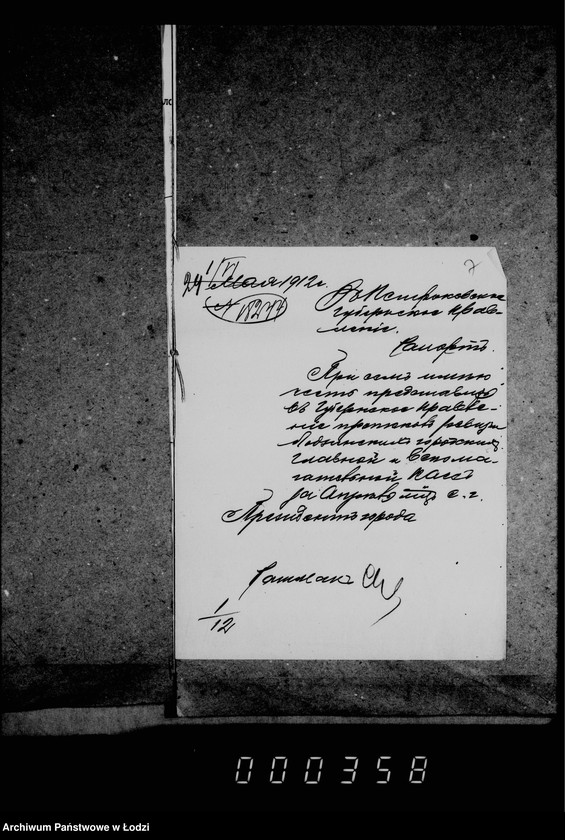 7
1/VI
24 Мая 1912 г.
№
Въ Петроковское
Губернское Прав-
леніе.
Рапортъ.
При семъ имѣю
честь представить
въ Губернское Правле-
ніе протоколъ ревизіи
Лодзинскихъ городскихъ
главной и вспомо-
гательной кассъ
за Апрѣль мѣс. с. г.
Президентъ города
1/12
000358
Archiwum Państwowe w Łodzi